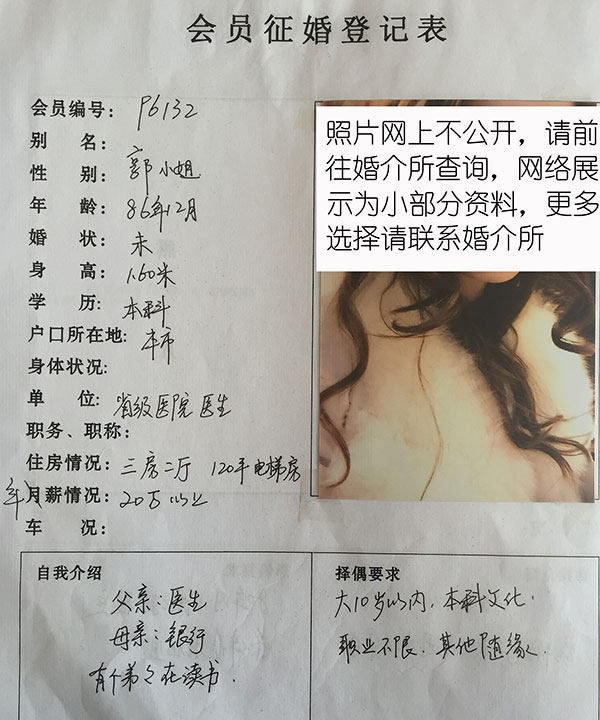 会员征婚登记表
会员编号: P6132
别 名:
性 别: 郭小姐
年 龄: 86年12月
婚 状: 未
身 高: 1.60米
学 历: 本科
户口所在地: 本市
身体状况:
单 位: 省级医院 医生
职务、职称:
住房情况: 三房二厅 120平电梯房
年月薪情况: 20万以上
车 况:
照片网上不公开，请前
往婚介所查询，网络展
示为小部分资料，更多
选择请联系婚介所
自我介绍
父亲:医生
母亲:银行
有个弟々在读书.
择偶要求
大10岁以内. 本科文化.
职业不限. 其他随缘.